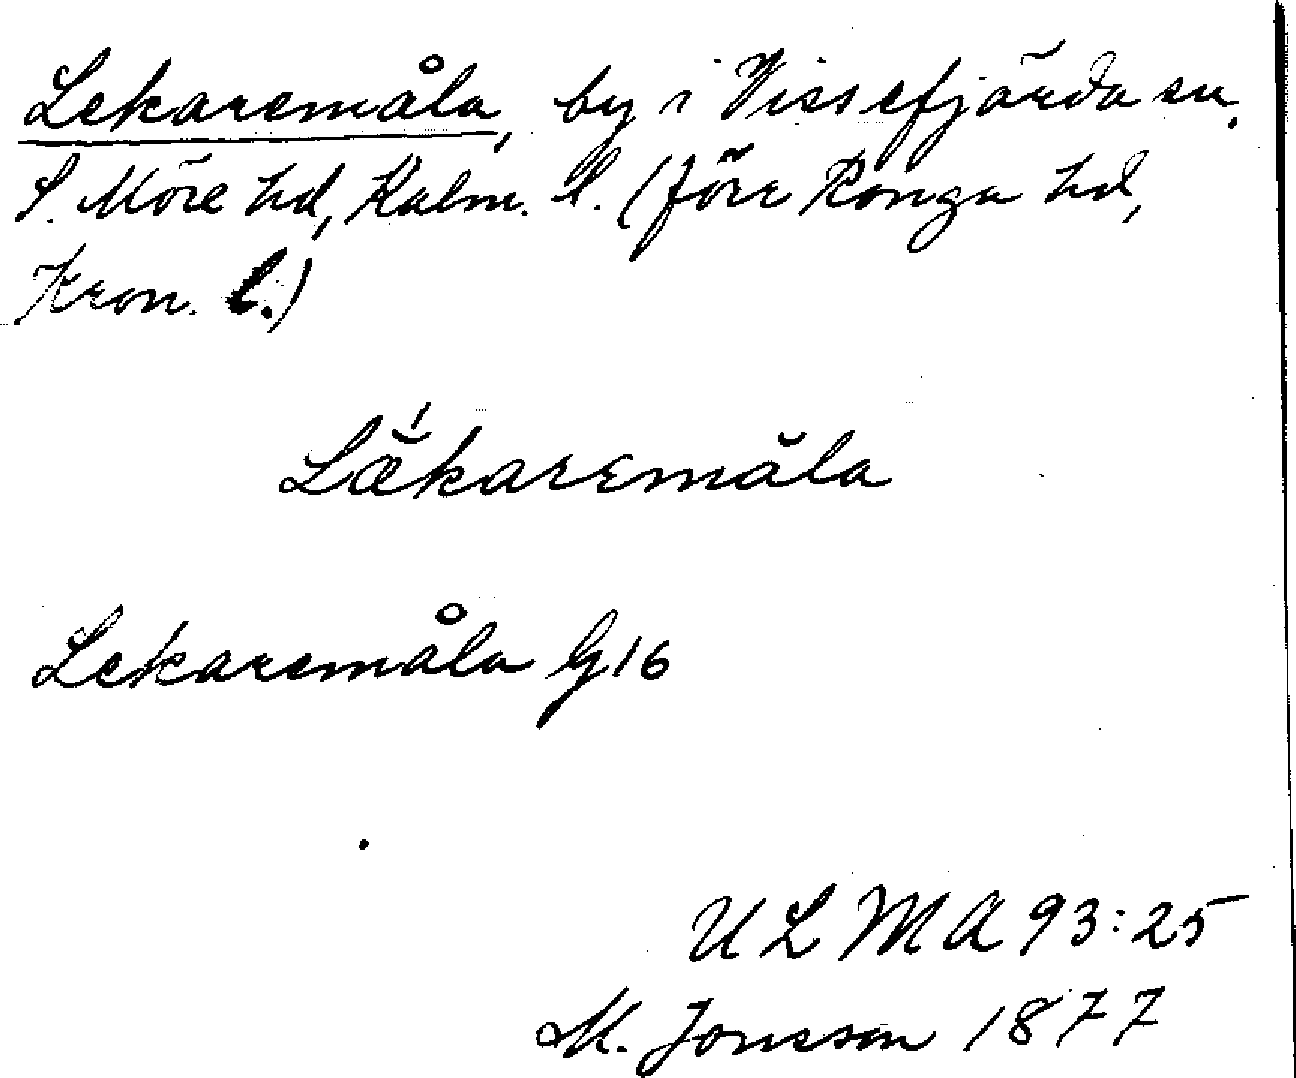 Lekaremåla, by i Vissefjärda sn,
S. Möre hd, Kalm. l. (förr Konga hd,
Kron. l.)
Lækaremåla
Lekaremåla G16
ULMA 93:25
M. Jonsson 1877